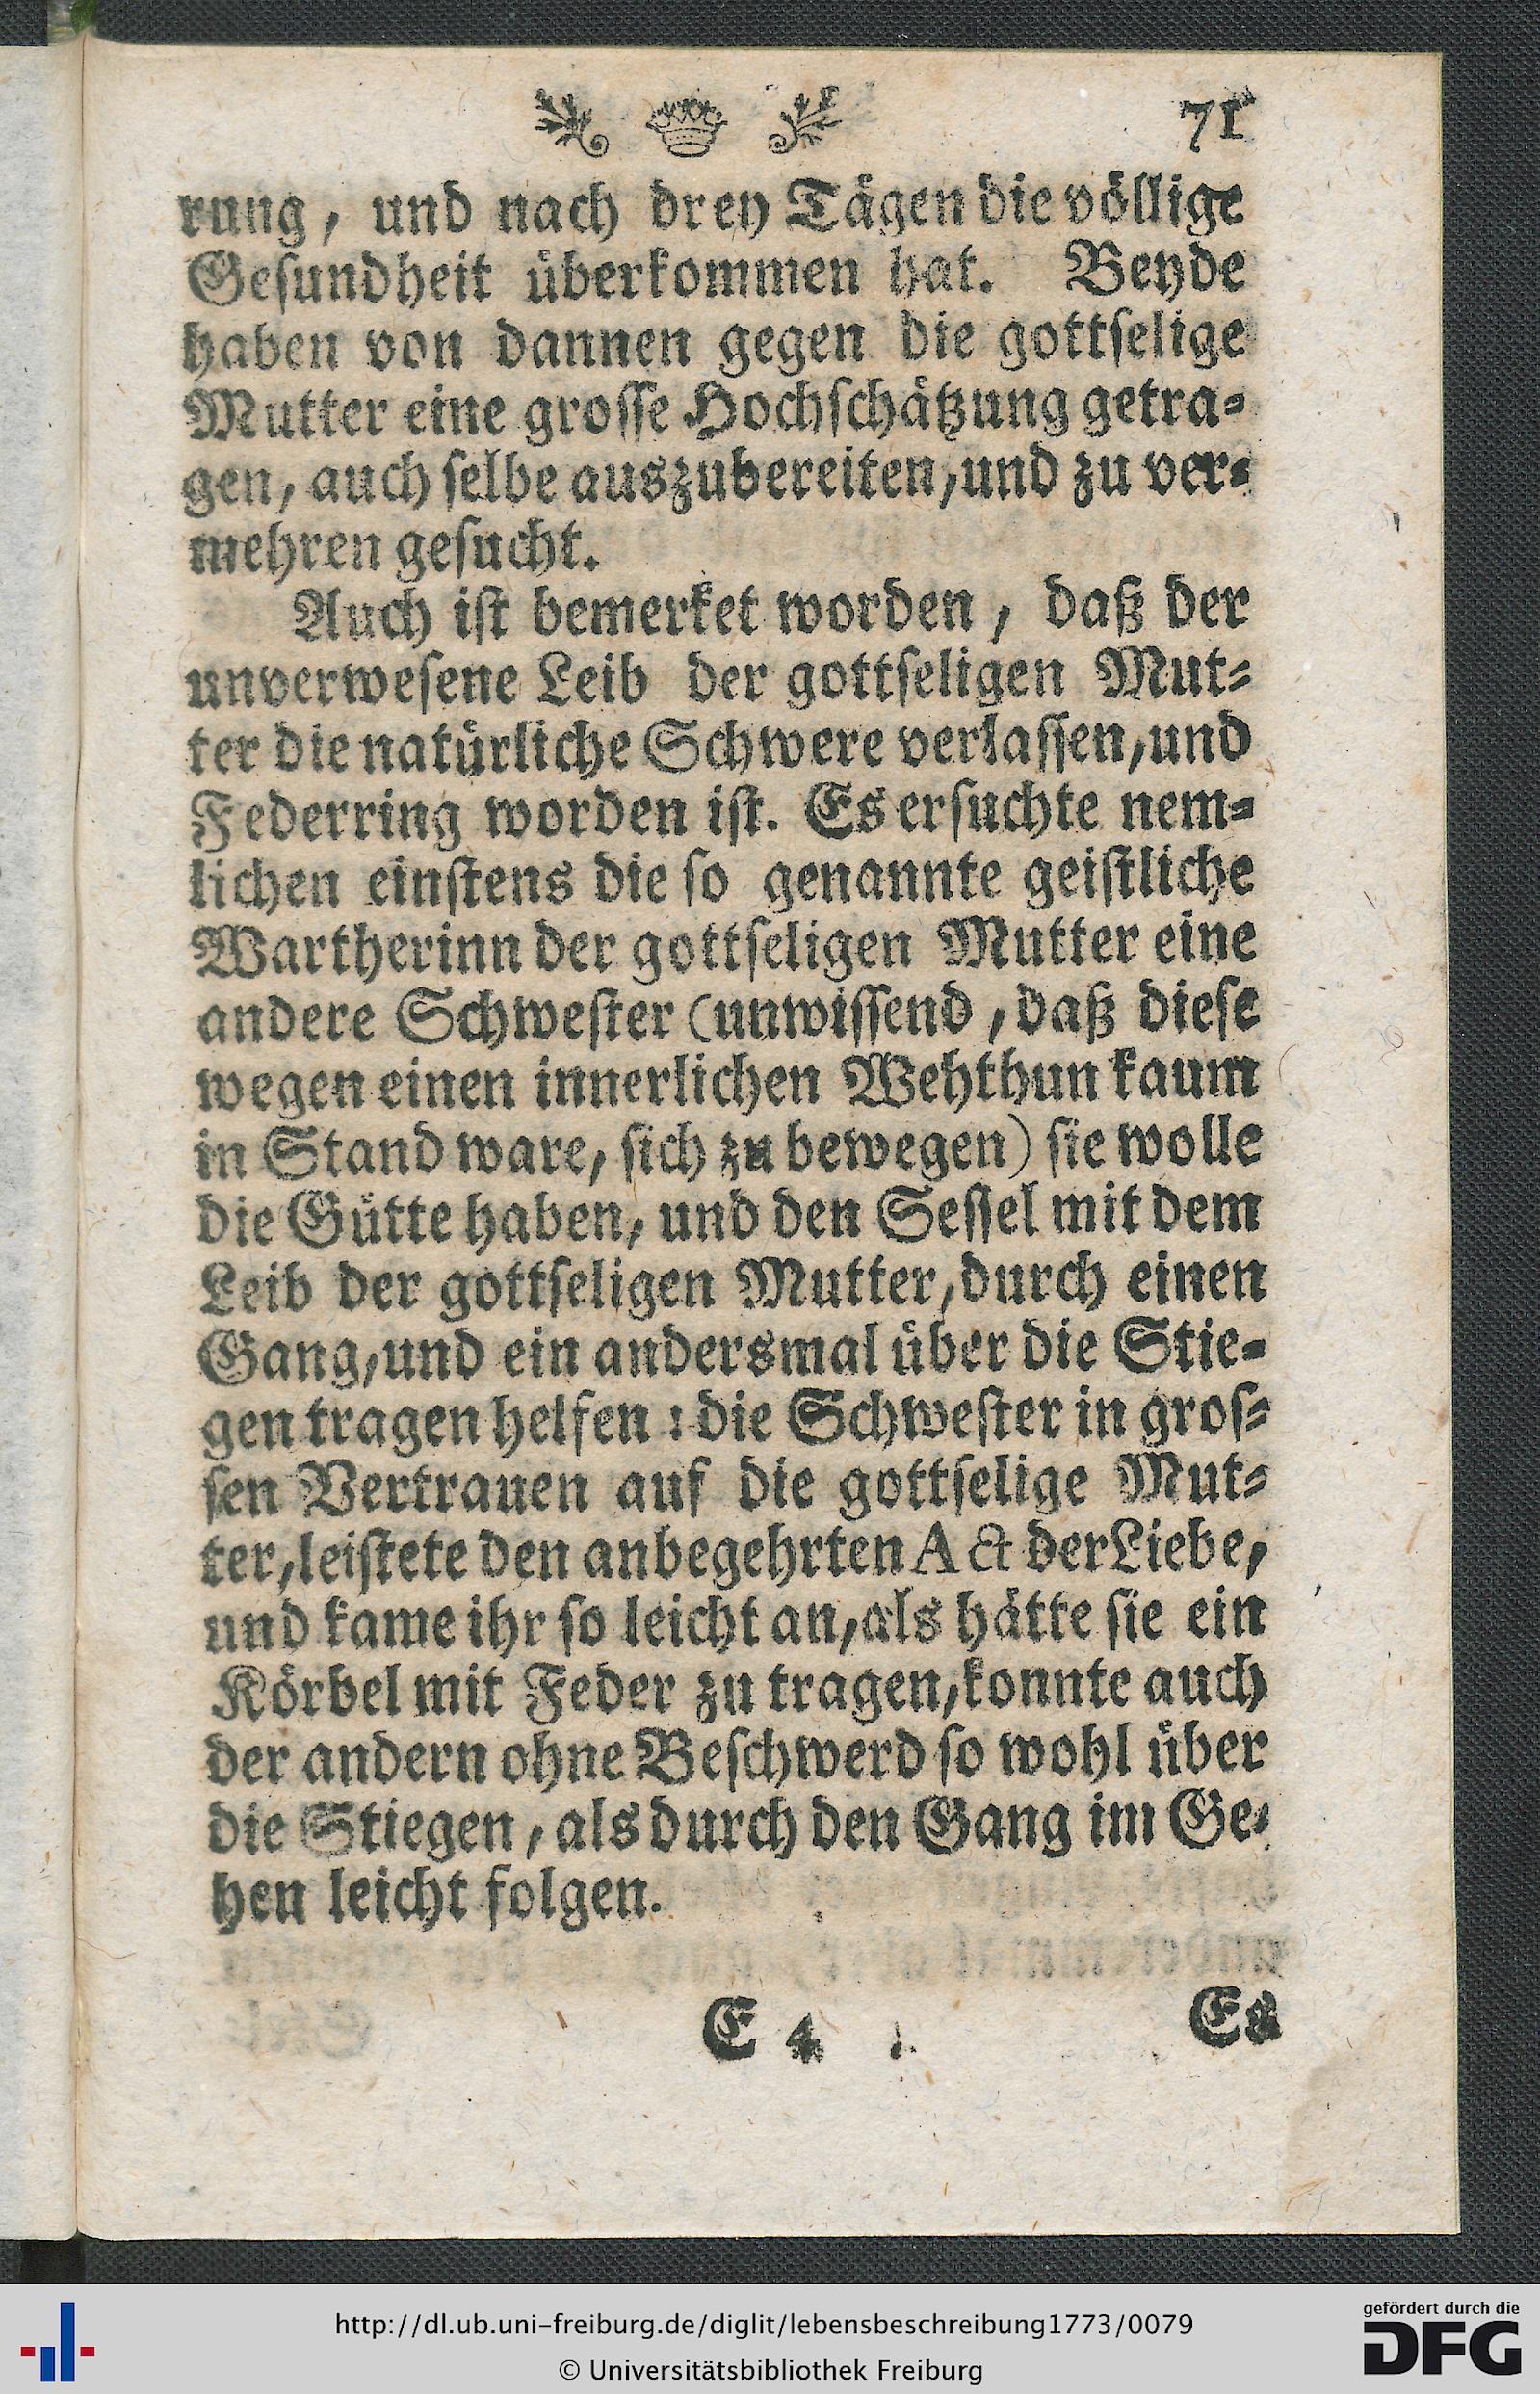 71
rung, und nach drey Tägen die völlige
Gesundheit überkommen hat. Beyde
haben von dannen gegen die gottselige
Mutter eine grosse Hochschätzung getra-
gen, auch selbe auszubereiten, und zu ver-
mehren gesucht.
Auch ist bemerket worden, daß der
unverwesene Leib der gottseligen Mut-
ter die natürliche Schwere verlassen, und
Federring worden ist. Es ersuchte nem-
lichen einstens die so genannte geistliche
Wartherinn der gottseligen Mutter eine
andere Schwester (unwissend, daß diese
wegen einen innerlichen Wehthun kaum
in Stand ware, sich zu bewegen) sie wolle
die Gütte haben, und den Sessel mit dem
Leib der gottseligen Mutter, durch einen
Gang, und ein andersmal über die Stie-
gen tragen helfen: die Schwester in gros-
sen Vertrauen auf die gottselige Mut-
ter, leistete den anbegehrten Act der Liebe,
und kame ihr so leicht an, als hätte sie ein
Körbel mit Feder zu tragen, konnte auch
der andern ohne Beschwerd so wohl über
die Stiegen, als durch den Gang im Ge-
hen leicht folgen.
E 4 Es
http://dl.ub.uni-freiburg.de/diglit/lebensbeschreibung1773/0079
© Universitätsbibliothek Freiburg
gefördert durch die
DFG